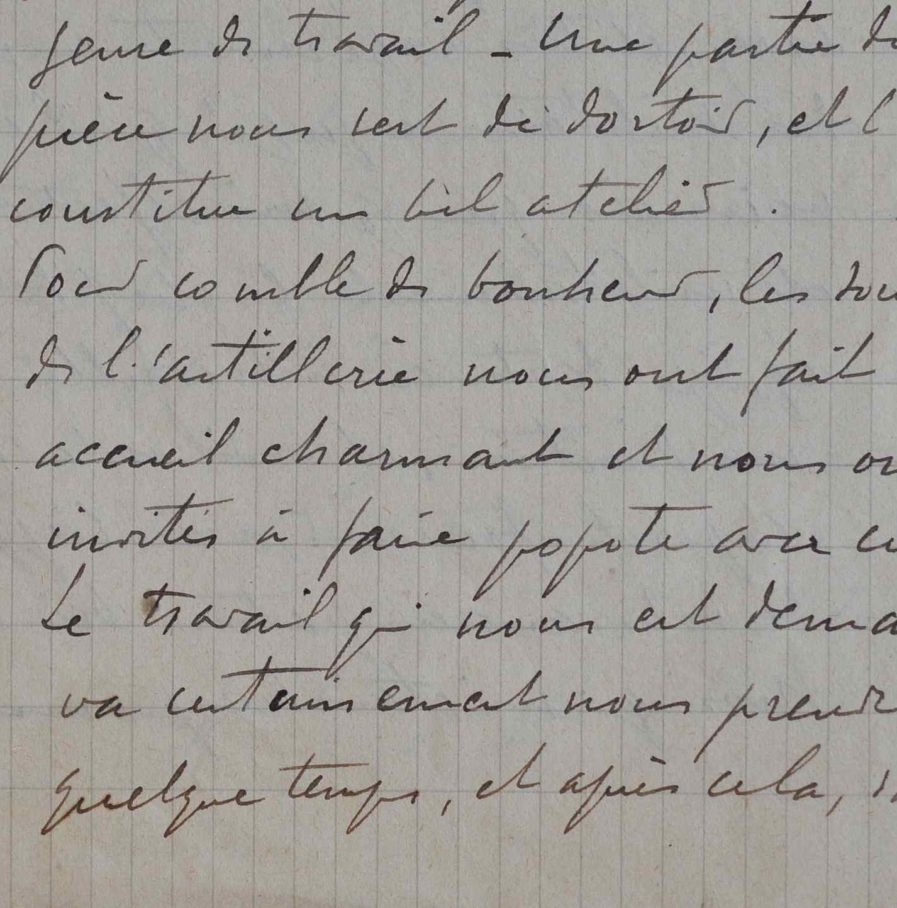 genre de travail - Une partie de
pièce nous sert de dortoir, et l
constitue un bel atelier.
Pour comble de bonheur, les
de l'artillerie nous ont fait
accueil charmant et nous on
invités à faire popote avec
Le travail qui nous est dema
va certainement nous prend
quelque temps, et après cela,